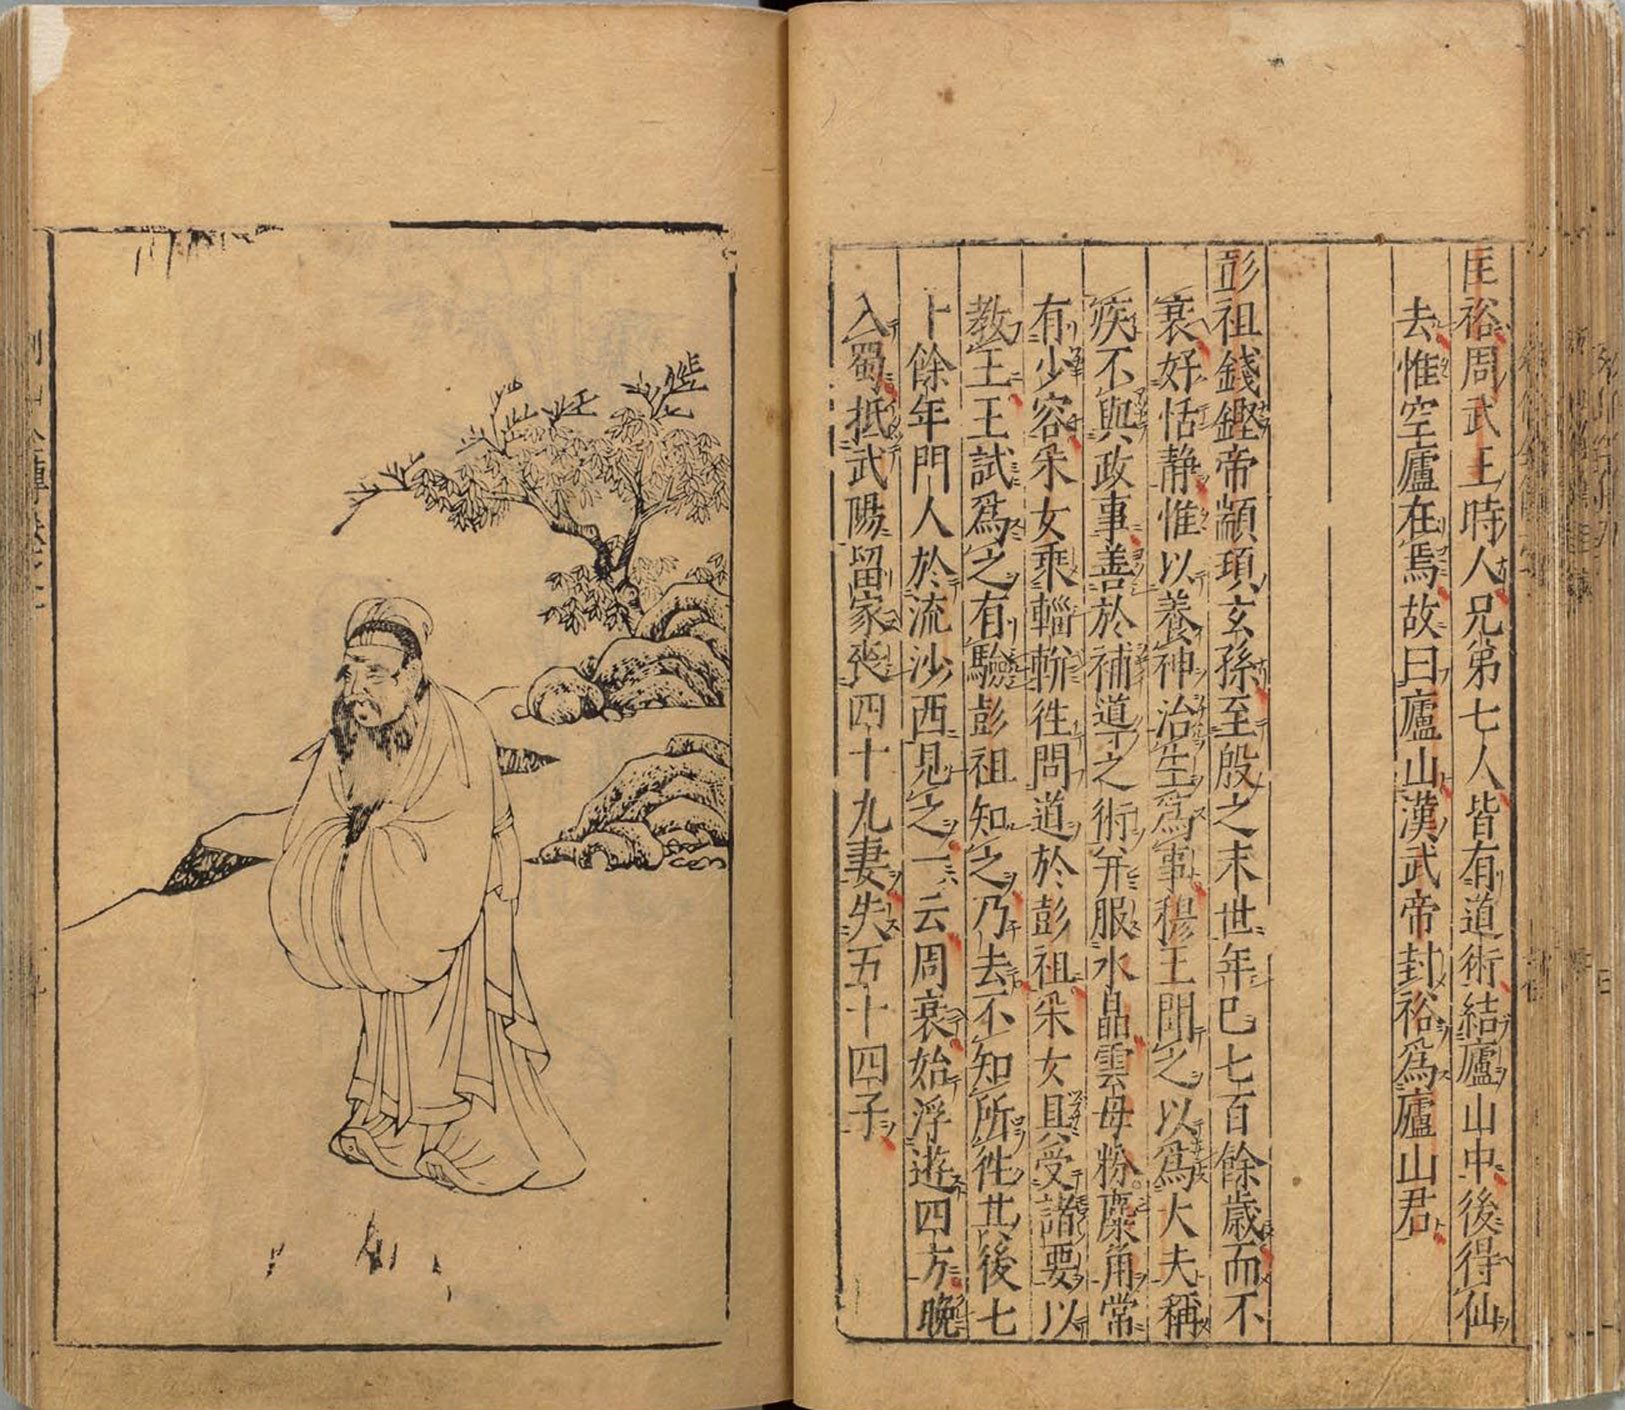 匡裕周武王時人兄弟七人皆有道術結廬山中後得仙
去惟空廬在焉故曰廬山漢武帝封裕爲廬山君
彭祖錢鏗帝顓頊玄孫至殷之末世年已七百餘歳而不
衰好恬静惟以養神治生爲事穆王聞之以爲大夫稱
疾不與政事善於補道之術并服水晶雲母粉麋角常
有少容采女乗輜軿徃問道於彭祖采女具受諸要以
教王王試爲之有驗彭祖知之乃去不知所徃其後七
十餘年門人於流沙西見之一云周衰始浮遊四方晚
入蜀抵武陽留家喪四十九妻失五十四子